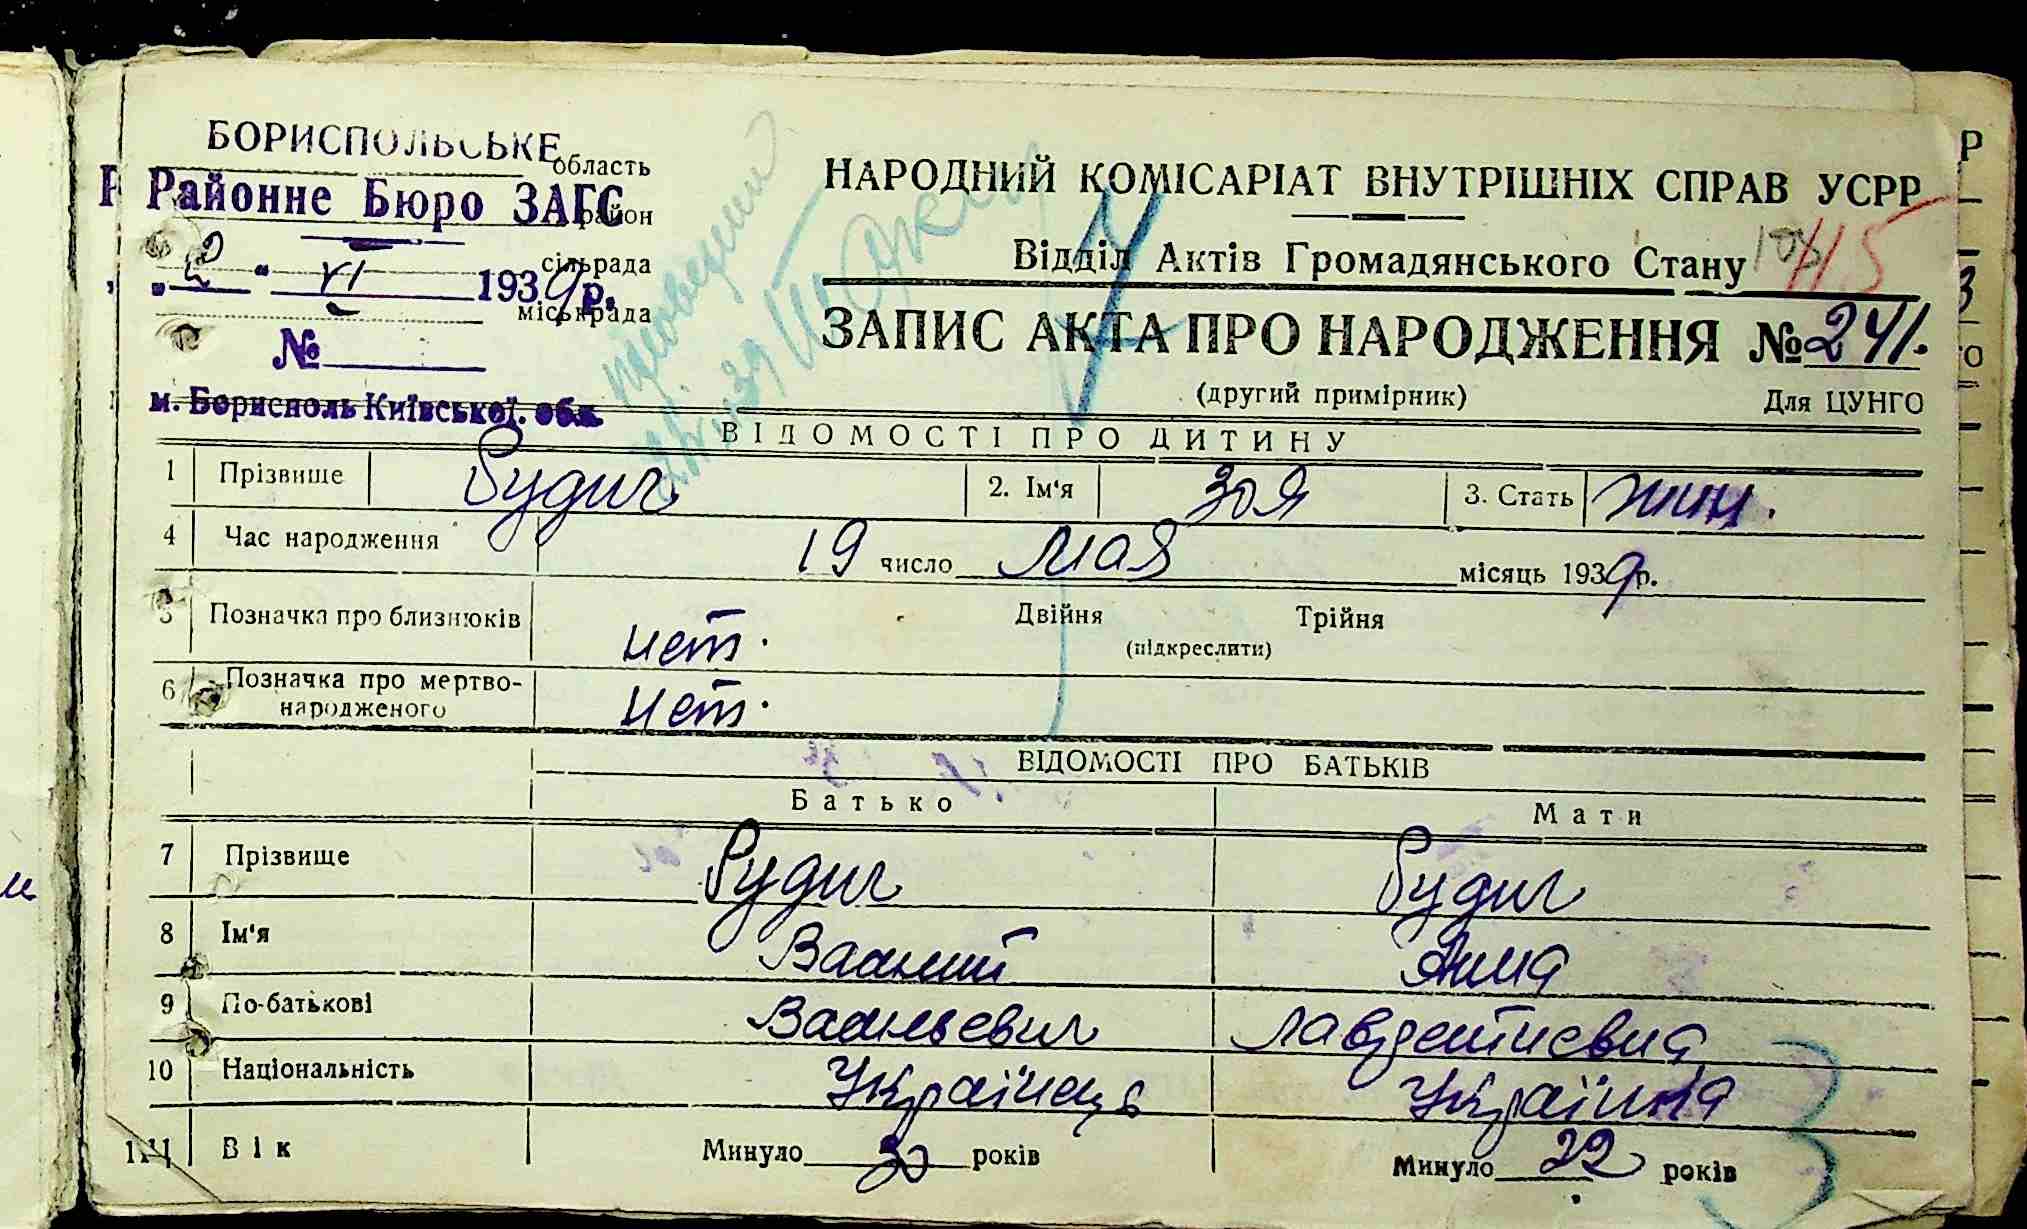 БОРИСПОЛЬСЬКЕ
область
Районне Бюро ЗАГС
район
сільрада
„2“ VI 1939р.
міськрада
№
м. Бориспль Київської. обл.
НАРОДНИЙ КОМІСАРІАТ ВНУТРІШНІХ СПРАВ УСРР
Відділ Актів Громадянського Стану
115
ЗАПИС АКТА ПРО НАРОДЖЕННЯ № 241.
(другий примірник) Для ЦУНГО
ВІДОМОСТІ ПРО ДИТИНУ
1 Прізвище Рудич 2. Ім'я Зоя 3. Стать жин.
4 Час народження 19 число мая місяць 1939р.
5 Позначка про близнюків нет. Двійня Трійня
(підкреслити)
6 Позначка про мертво-
народженого нет.
ВІДОМОСТІ ПРО БАТЬКІВ
Батько Мати
7 Прізвище Рудич Рудич
8 Ім'я Василий Анна
9 По-батькові Васильевич Лаврентиевна
10 Національність Українець Українка
11 Вік Минуло 30 років Минуло 22 років